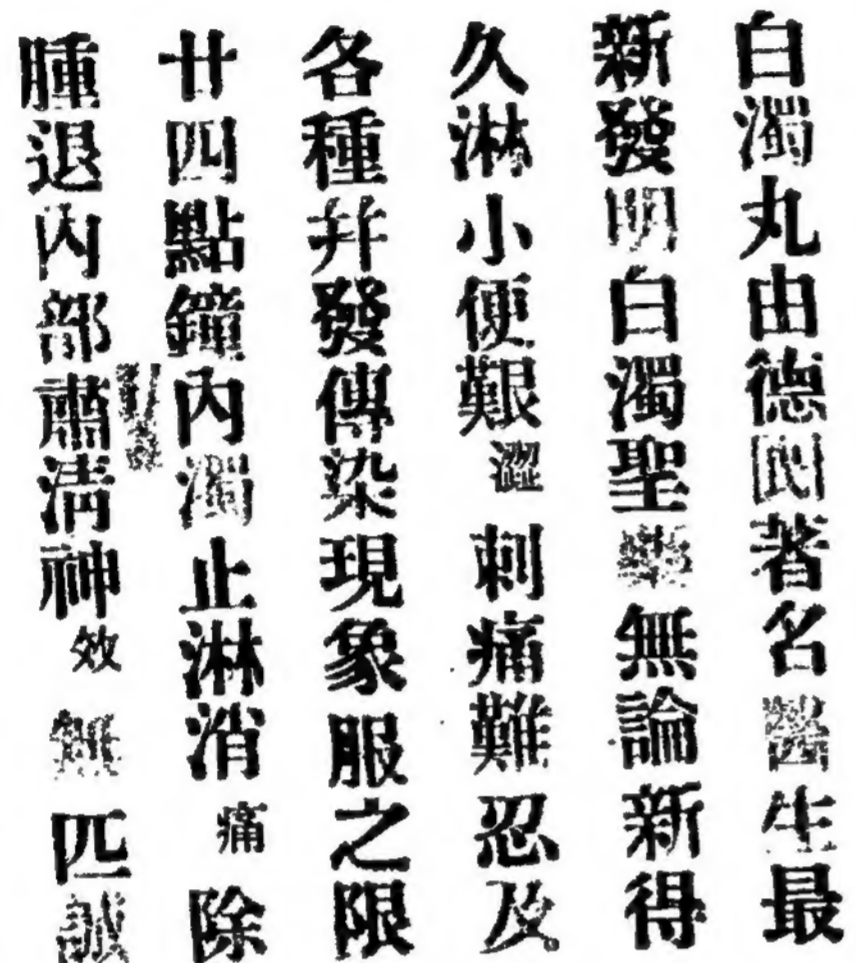 白濁丸由德國著名醫生最
新發明白濁聖藥無論新得
久淋小便艱澀刺痛難忍及
各種并發傳染現象服之限
廿四點鐘內濁止淋消痛除
腫退內部肅清神效無匹誠